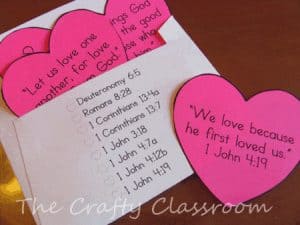 ngs God
the good
se who
him."
"Let us love one
another, for love
from God."
Deuteronomy 6:5
Romans 8:28
1 Corinthians 13:4a
1 Corinthians 13:7
1 John 3:18
1 John 4:7a
1 John 4:12b
1 John 4:19
"We love because
he first loved us."
1 John 4:19
The Crafty Classroom